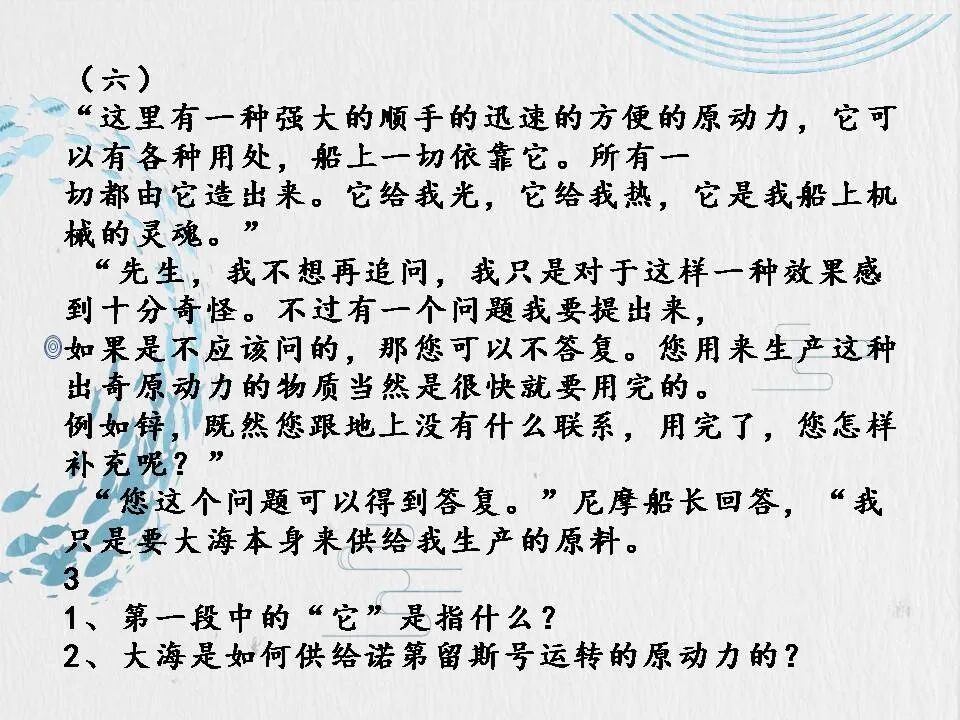 （六）
“这里有一种强大的顺手的迅速的方便的原动力，它可
以有各种用处，船上一切依靠它。所有一
切都由它造出来。它给我光，它给我热，它是我船上机
械的灵魂。”
“先生，我不想再追问，我只是对于这样一种效果感
到十分奇怪。不过有一个问题我要提出来，
如果是不应该问的，那您可以不答复。您用来生产这种
出奇原动力的物质当然是很快就要用完的。
例如锌，既然您跟地上没有什么联系，用完了，您怎样
补充呢？”
“您这个问题可以得到答复。”尼摩船长回答，“我
只是要大海本身来供给我生产的原料。
3
1、第一段中的“它”是指什么？
2、大海是如何供给诺第留斯号运转的原动力的？